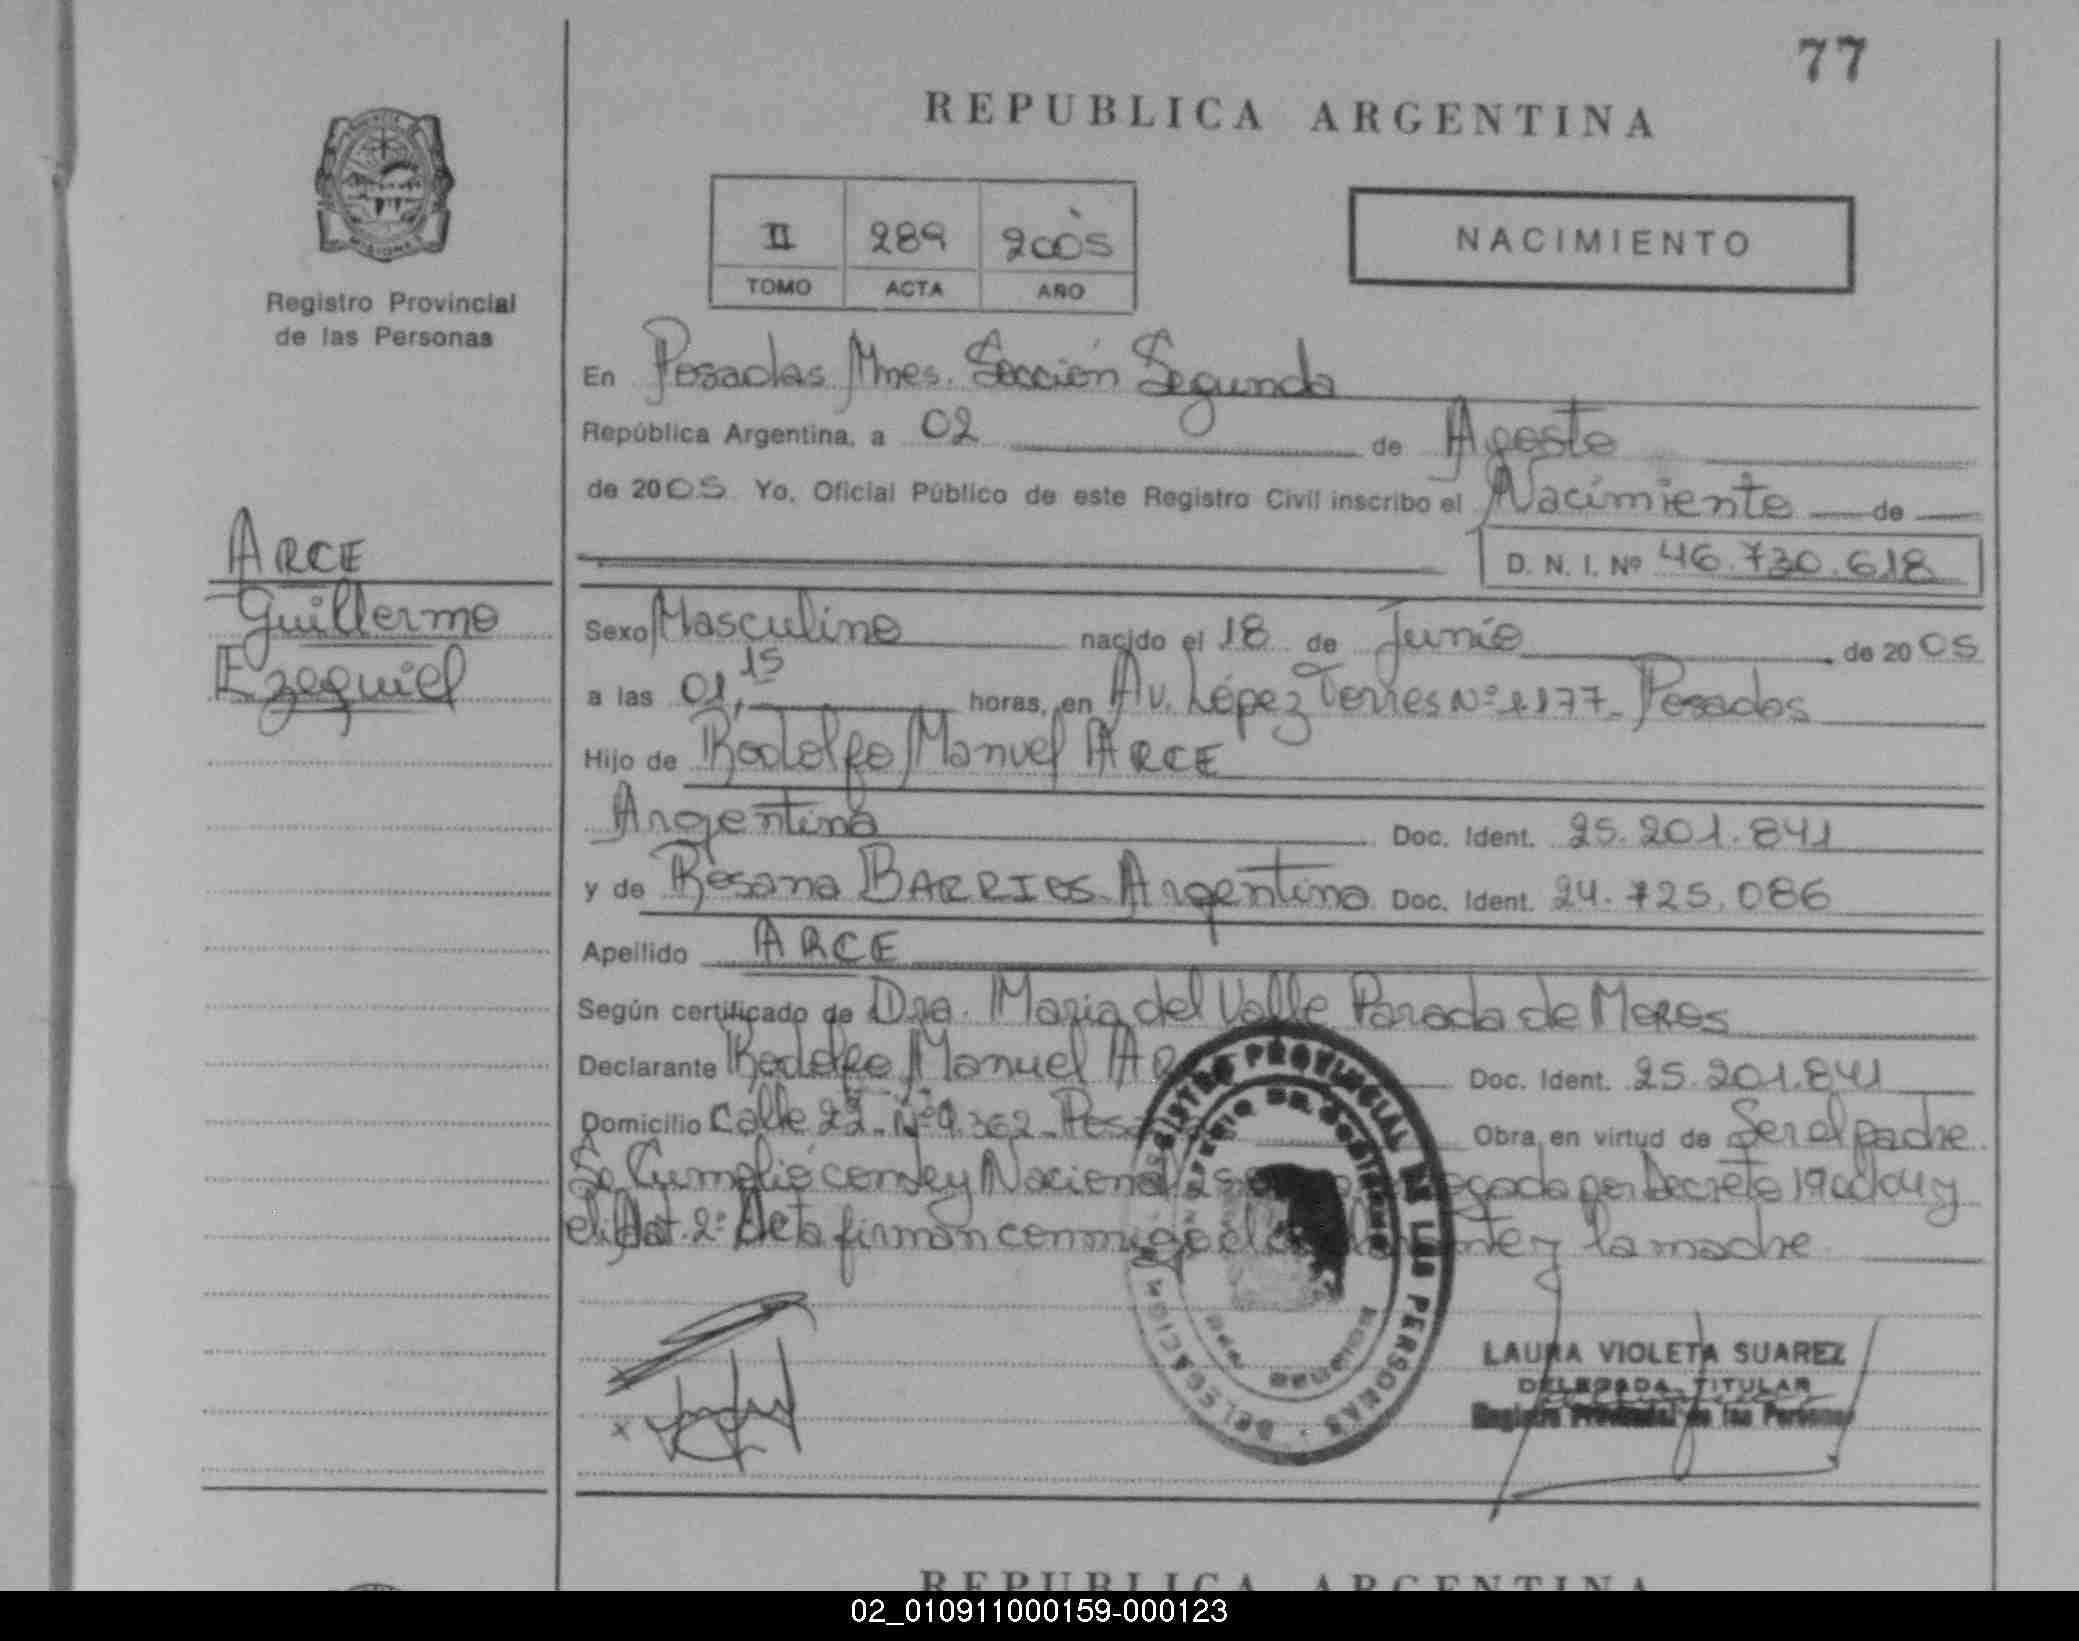 77
REPUBLICA ARGENTINA
II 289 2005
TOMO ACTA AÑO
NACIMIENTO
Registro Provincial
de las Personas
En Posadas Mnes. Sección Segunda
República Argentina, a 02 de Agosto
de 2005 Yo, Oficial Público de este Registro Civil inscribo el Nacimiento de
D. N. I. Nº 46.730.618
ARCE
Guillermo
Ezequiel
Sexo Masculino nacido el 18 de Junio de 2005
a las 01,15 horas, en Av. López Torres Nº 1177 - Posadas
Hijo de Rodolfo Manuel ARCE
Argentina Doc. Ident. 25.201.841
y de Rosana BARRIOS - Argentina Doc. Ident. 24.725.086
Apellido ARCE
Según certificado de Dra. Maria del Valle Parada de Moros
Declarante Rodolfo Manuel Doc. Ident. 25.201.841
Domicilio Calle 22 - Nº 9.362 - Obra en virtud de Ser el padre
Se Cumplió con Ley Nacional por Decreto y
el Art. 2º Acta firman conmigo el y la madre
REGISTRO PROVINCIAL DE LAS PERSONAS
DELEGACION
LAURA VIOLETA SUAREZ
DELEGADA TITULAR
Registro Provincial de las Personas
REPUBLICA ARGENTINA
02_010911000159-000123